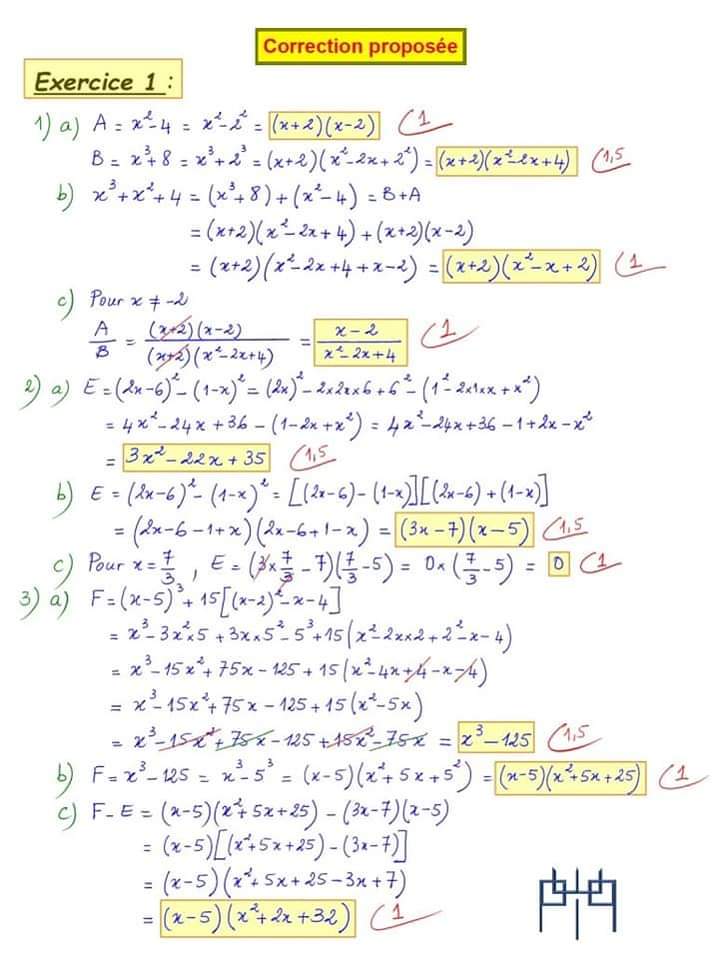 Correction proposée
Exercice 1 :
1) a) A = x² - 4 = x² - 2² = (x+2)(x-2) 1
B = x³ + 8 = x³ + 2³ = (x+2)(x² - 2x + 2²) = (x+2)(x² - 2x + 4) 1,5
b) x³ + x² + 4 = (x³ + 8) + (x² - 4) = B + A
= (x+2)(x² - 2x + 4) + (x+2)(x-2)
= (x+2)(x² - 2x + 4 + x - 2) = (x+2)(x² - x + 2) 1
c) Pour x ≠ -2
A/B = (x+2)(x-2)/(x+2)(x² - 2x + 4) = x - 2/x² - 2x + 4 1
2) a) E = (2x-6)² - (1-x)² = (2x)² - 2×2x×6 + 6² - (1² - 2×1×x + x²)
= 4x² - 24x + 36 - (1 - 2x + x²) = 4x² - 24x + 36 - 1 + 2x - x²
= 3x² - 22x + 35 1,5
b) E = (2x-6)² - (1-x)² = [(2x-6) - (1-x)][(2x-6) + (1-x)]
= (2x - 6 - 1 + x)(2x - 6 + 1 - x) = (3x - 7)(x - 5) 1,5
c) Pour x = 7/3 , E = (3×7/3 - 7)(7/3 - 5) = 0×(7/3 - 5) = 0 1
3) a) F = (x-5)³ + 15[(x-2)² - x - 4]
= x³ - 3x²×5 + 3x×5² - 5³ + 15(x² - 2x×2 + 2² - x - 4)
= x³ - 15x² + 75x - 125 + 15(x² - 4x + 4 - x - 4)
= x³ - 15x² + 75x - 125 + 15(x² - 5x)
= x³ - 15x² + 75x - 125 + 15x² - 75x = x³ - 125 1,5
b) F = x³ - 125 = x³ - 5³ = (x-5)(x² + 5x + 5²) = (x-5)(x² + 5x + 25) 1
c) F - E = (x-5)(x² + 5x + 25) - (3x-7)(x-5)
= (x-5)[(x² + 5x + 25) - (3x-7)]
= (x-5)(x² + 5x + 25 - 3x + 7)
= (x-5)(x² + 2x + 32) 1